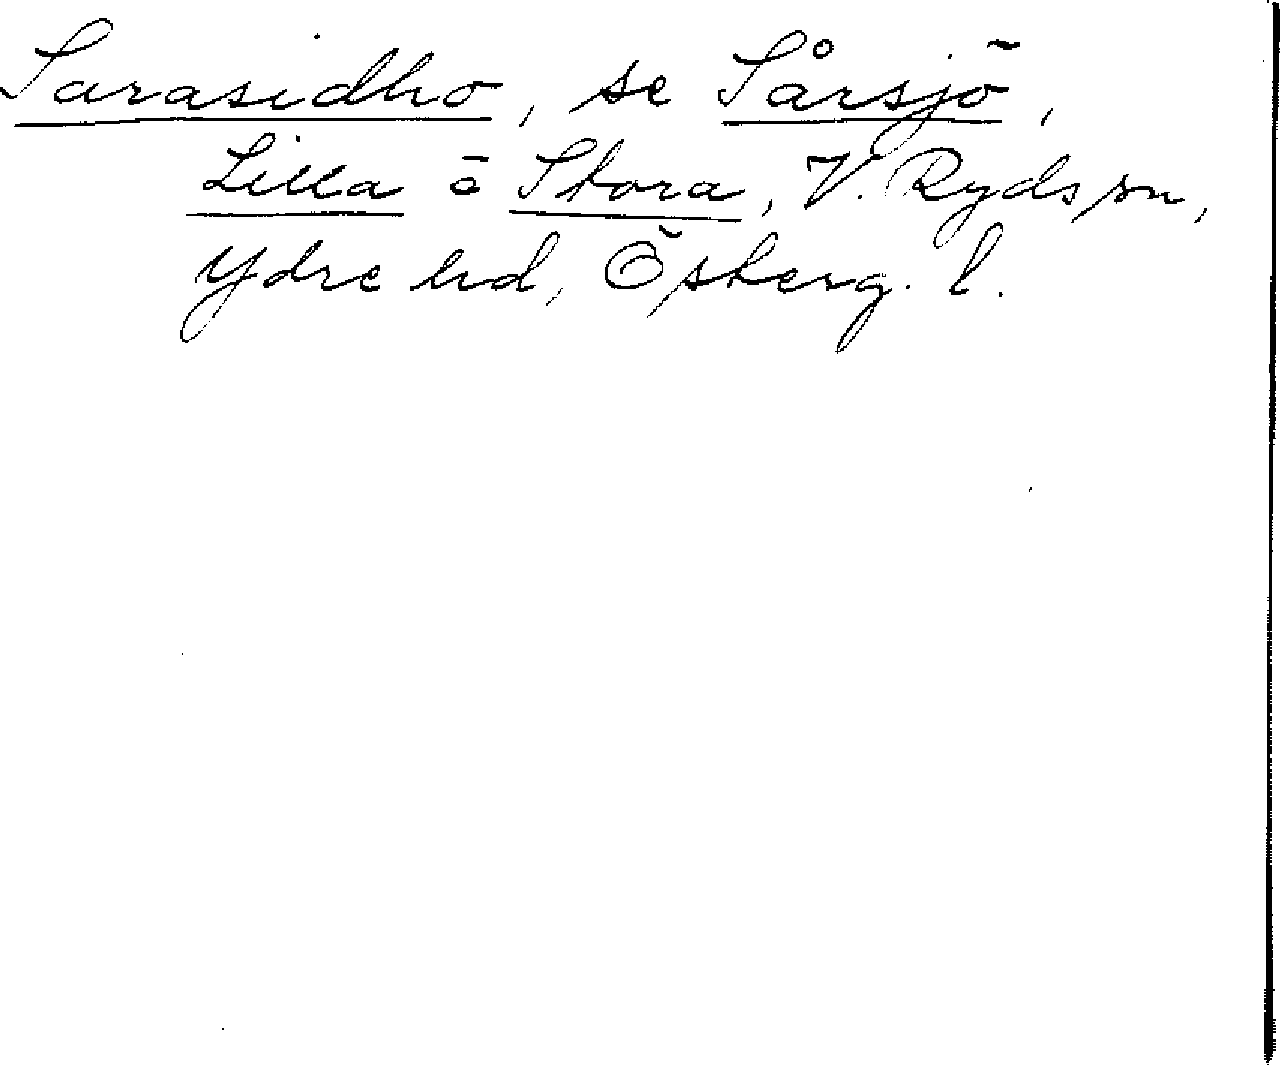 Sarasidho, se Sårsjö,
Lilla o Stora, V. Ryds sn,
Ydre hd, Österg. l.